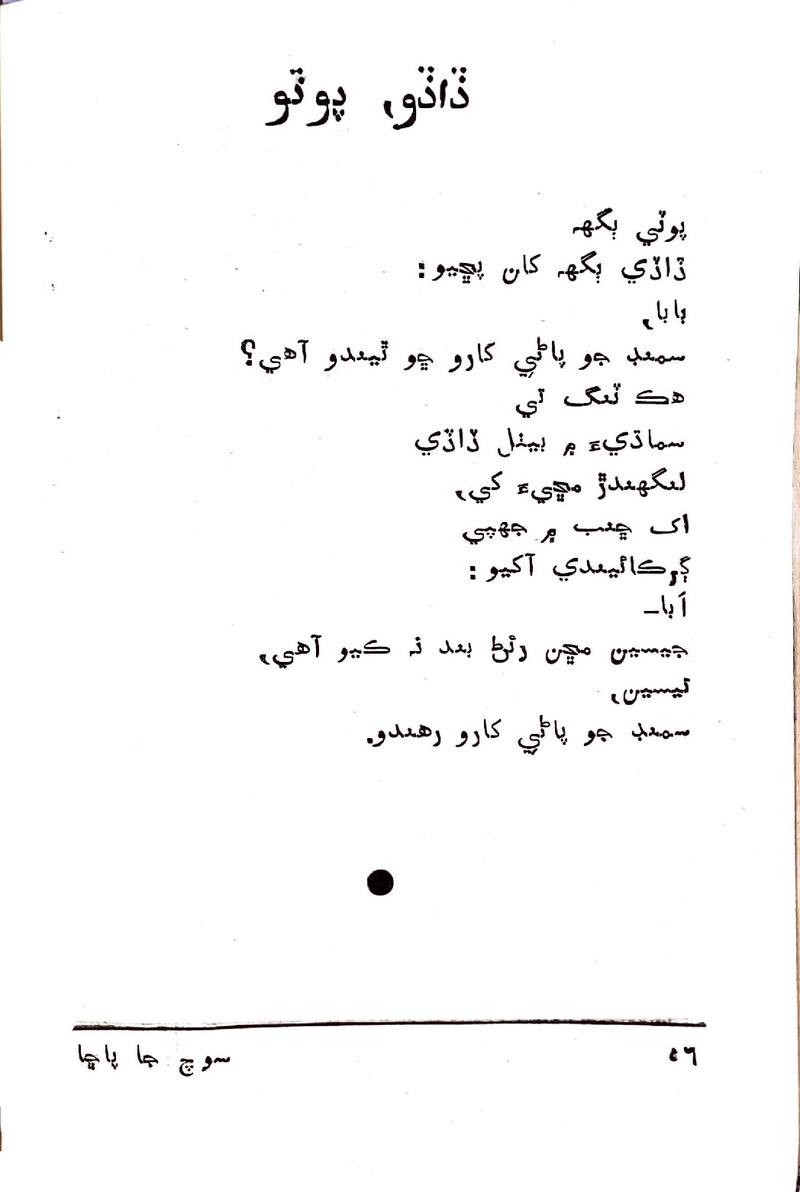 ڏاڏو، پوٽو
پوٽي ٻگهہ
ڏاڏي ٻگهہ کان پڇيو:
ٻابا،
سمنڊ جو پاڻي کارو ڇو ٿيندو آهي؟
هڪ ٽنگ تي
سماڌيءَ ۾ بيٺل ڏاڏي
لنگهندڙ مڇيءَ کي،
اک ڇنب ۾ جهپي
ڳرڪائيندي آکيو:
اَٻا–
جيسين مڇن رئڻ بند نہ ڪيو آهي،
تيسين،
سمنڊ جو پاڻي کارو رهندو.
سوچ جا پاڇا
٤٦